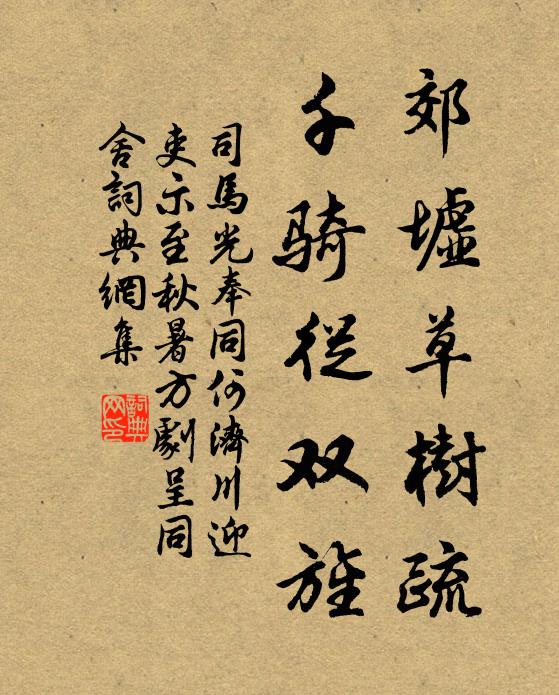 郊墟草樹疏
千骑從双旌
司馬光奉同何濟川迎
吏示至秋暑方劇呈同
舍詞典網集
詞典
网印